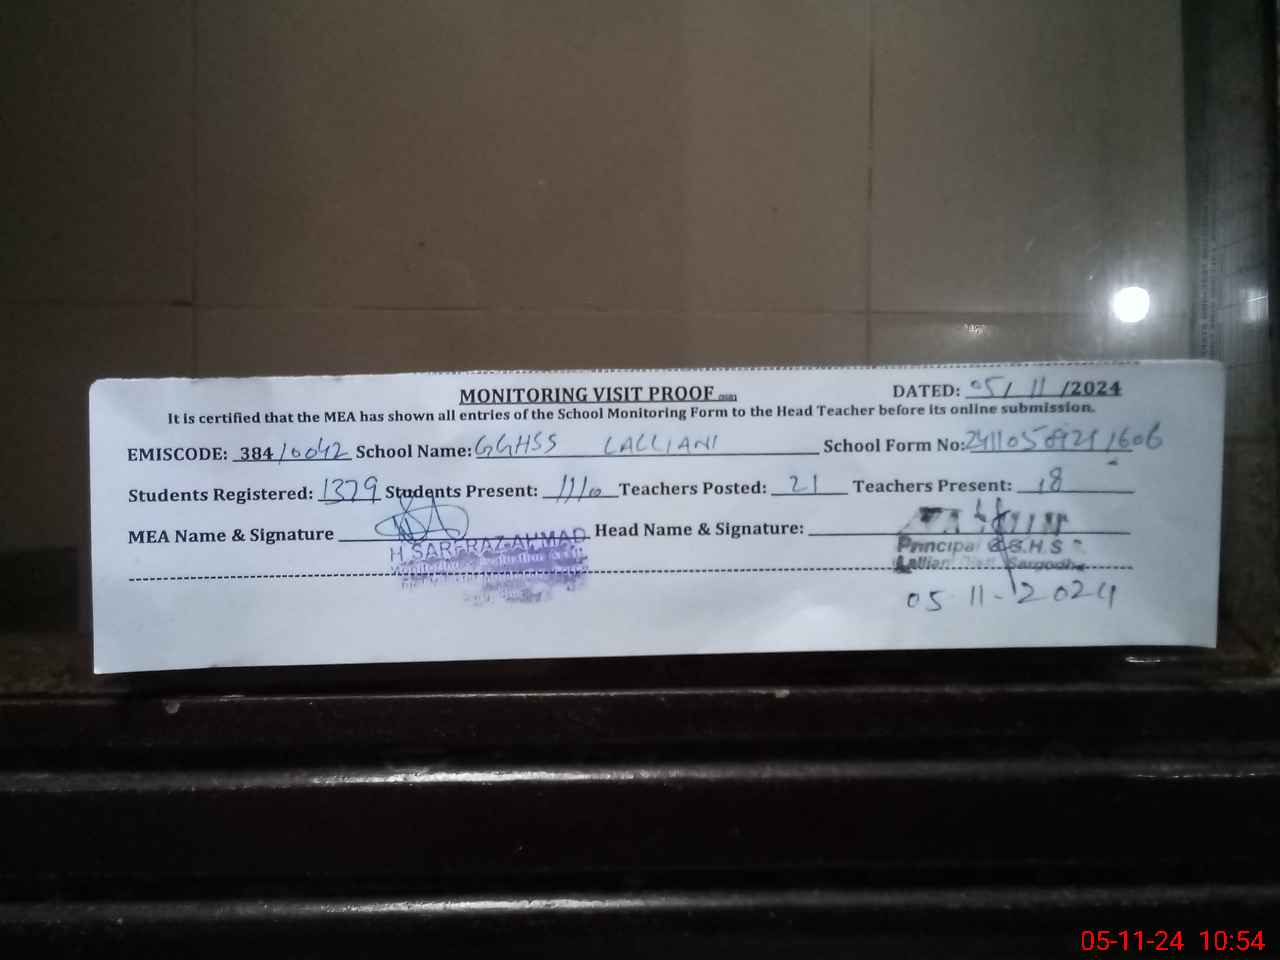 MONITORING VISIT PROOF DATED: 05/11/2024
It is certified that the MEA has shown all entries of the School Monitoring Form to the Head Teacher before its online submission.
EMISCODE: 384/0042 School Name: GGHSS LALLIANI School Form No:
Students Registered: 1379 Students Present: 1110 Teachers Posted: 21 Teachers Present: 18
MEA Name & Signature Head Name & Signature:
H SARFRAZ AHMAD
Monitoring Evaluation
Principal G.G.H.S
Lalliani Distt. Sargodha
05 11-2024
05-11-24 10:54